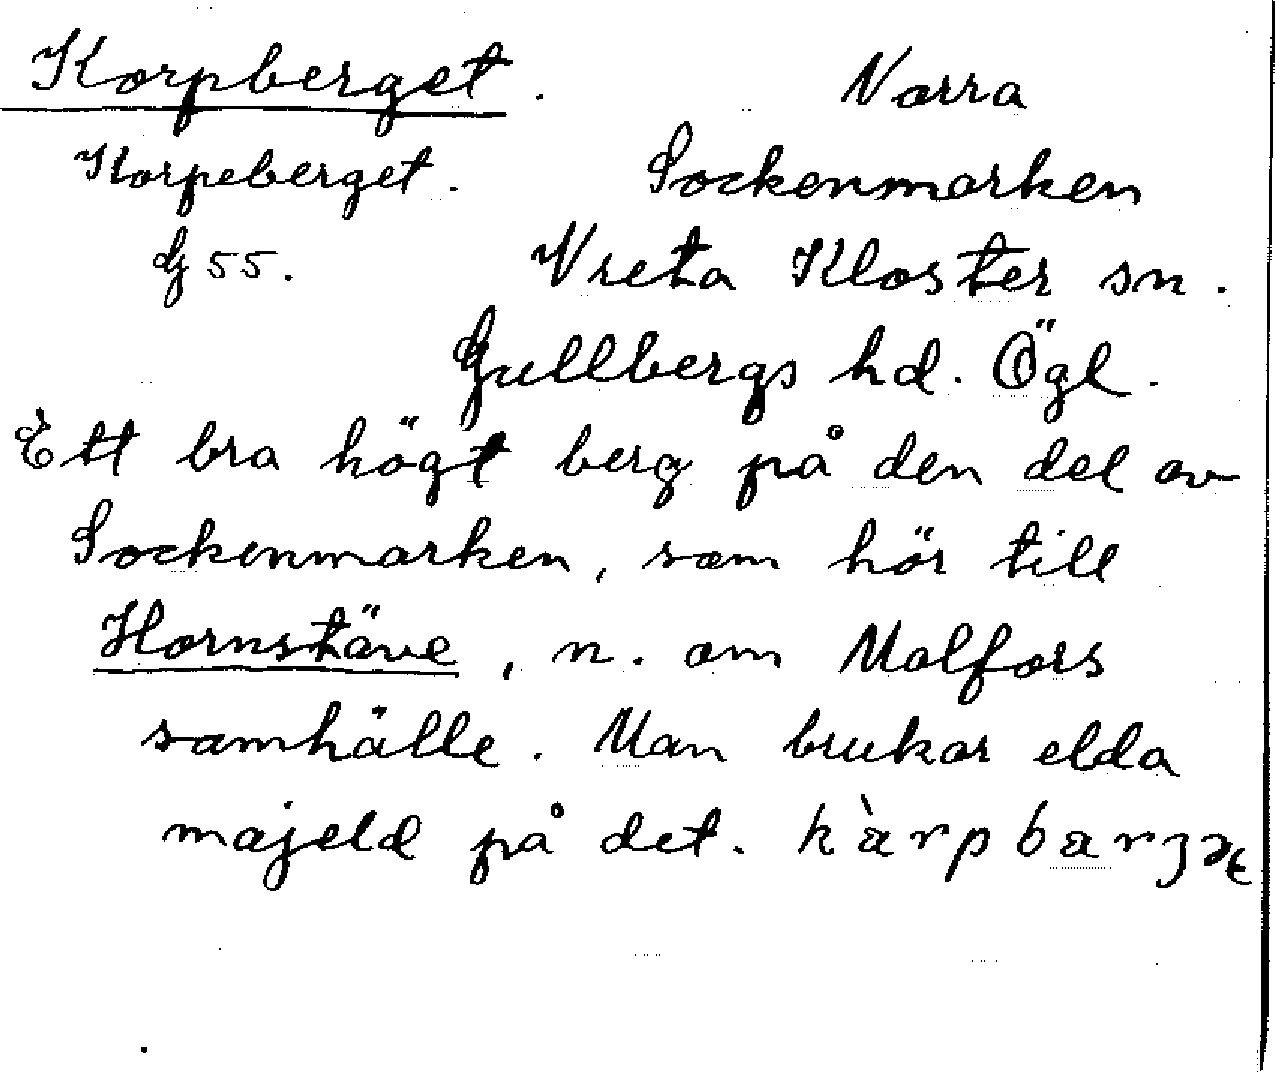 Korpberget. Norra
Korpeberget. Sockenmarken
G 55. Vreta Kloster sn.
Gullbergs hd. Ögl.
Ett bra högt berg på den del av
Sockenmarken, som hör till
Hornstäve, n. om Malfors
samhälle. Man brukar elda
majeld på det.